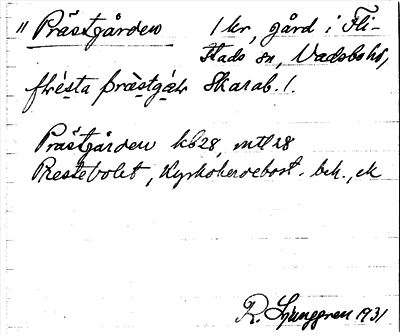 " Prästgården 1 kr, gård i Fli-
stads sn, Vadsbo hd,
Skarab. l.
Prästgården kb 28, mtl 28
Prestebolet, Kyrkoherdebost. bek., ek
R. Ljunggren 1931